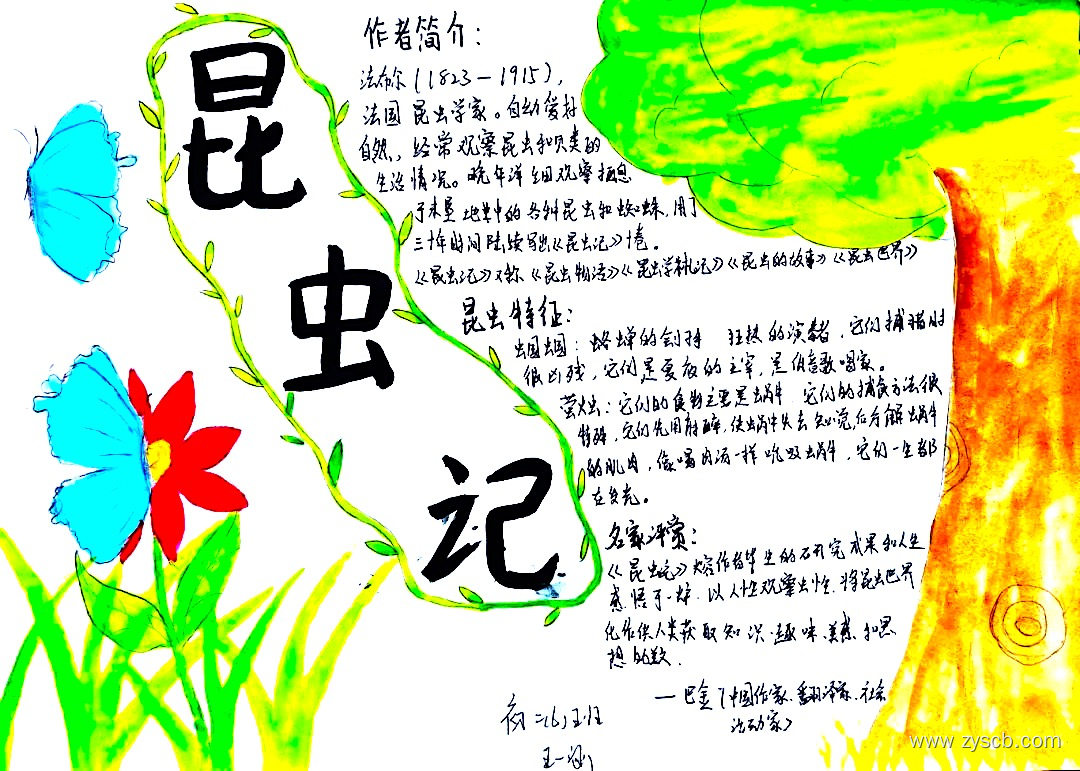 昆
虫
记
作者简介：
法布尔(1823—1915)，
法国昆虫学家。自幼爱好
自然，经常观察昆虫和贝类的
生活情况。晚年详细观察栖息
于木星地其中的各种昆虫和蜘蛛，用了
三十年时间陆续写出《昆虫记》十卷。
《昆虫记》又称《昆虫物语》《昆虫学札记》《昆虫的故事》《昆虫世界》
昆虫特征：
蝈蝈：蛒蝉的刽 狂热的演奏者，它们捕猎时
很凶残，它们是夏夜的主宰，是 歌唱家。
萤火虫：它们的食物主要是蜗牛 它们的捕食方法很
特殊，它们先用麻醉，使蜗牛失去知觉，后分解蜗牛
的肌肉，像喝肉汤一样吮吸蜗牛，它们一生都
在发光。
名家评赏：
《昆虫记》熔作者毕生的研究成果和人生
感悟于一炉，以人性观察虫性，将昆虫世界
化作供人类获取知识、趣味、美感和思
想的
—巴金(中国作家、翻译家、社会
活动家)
初二(6)班
王一涵
www.zyscb.com